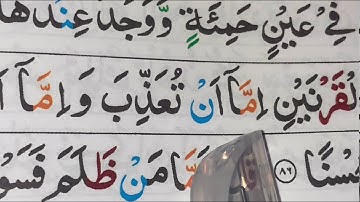 فِيْ عَيْنٍ حَمِئَةٍ وَّوَجَدَ عِنْدَهَا
لْقَرْنَيْنِ اِمَّاۤ اَنْ تُعَذِّبَ وَاِمَّاۤ
حُسْنًا ۸۶ مَنْ ظَلَمَ فَسَوْ